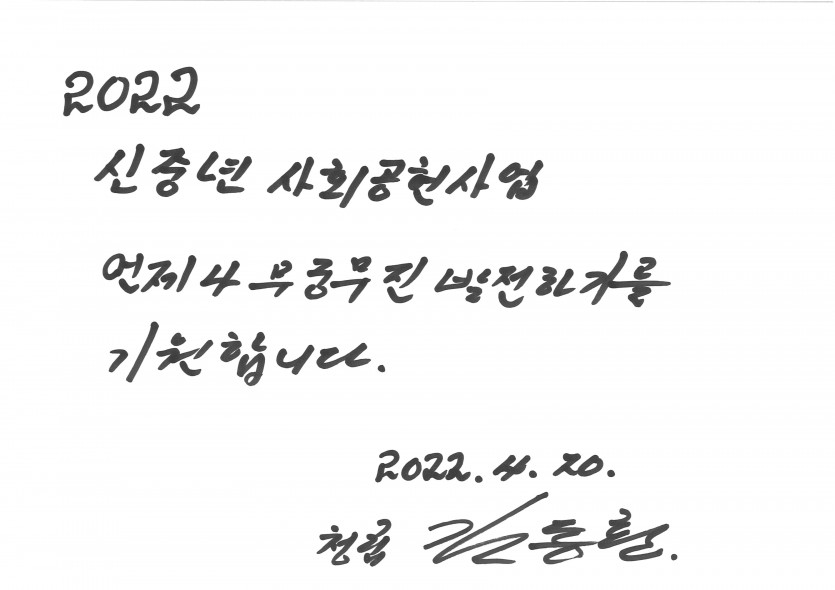 2022
신중년 사회공헌사업
언제나 무궁무진 발전하기를
기원합니다.
2022. 4. 20.